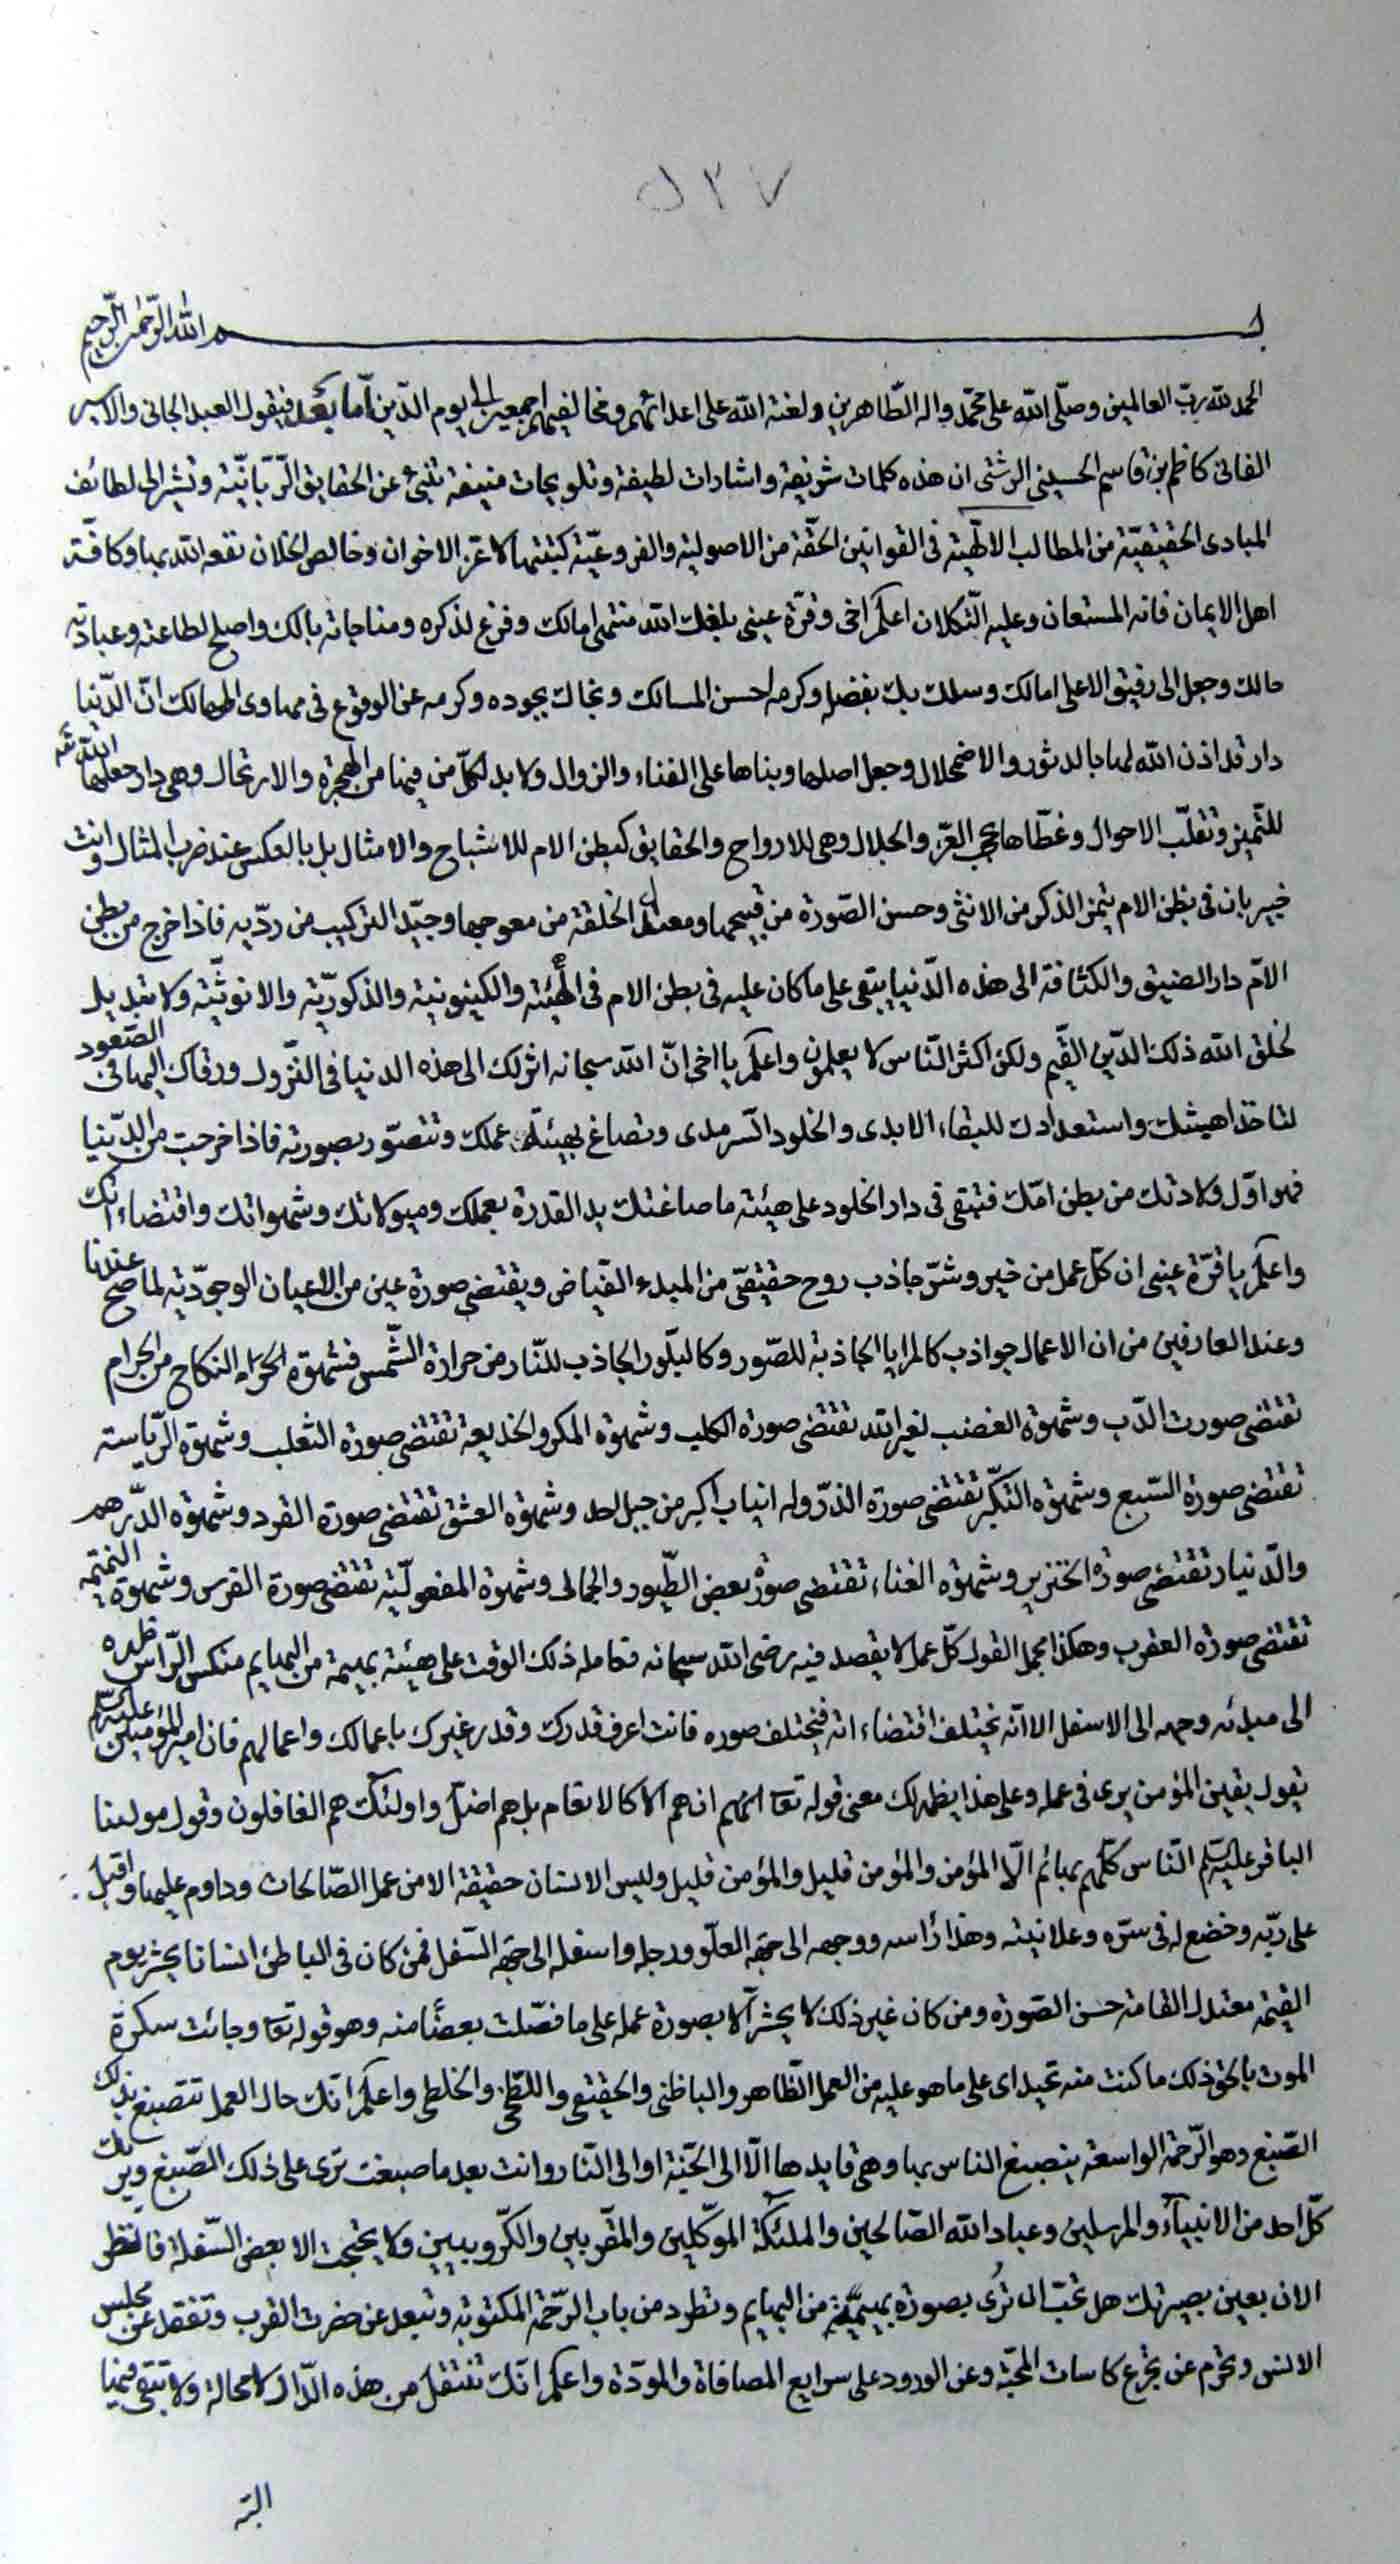 ٧٣ل
بسم الله الرّحمن الرّحيم
الحمد لله ربّ العالمين وصلّى الله على محمّد واله الطّاهرين ولعنة الله على اعدائهم ومخالفيهم اجمعين الى يوم الدّين امّا بعد فيقول العبد الجانى والاسير
الفانى كاظم بن قاسم الحسينى الرشتى ان هذه كلمات شريفة واشارات لطيفة وتلويحات منيفة تنبئ عن الحقايق الرّبّانيّة وتشير الى لطائف
المبادى الحقيقيّة من المطالب الالهيّة فى القوانين الحقّة من الاصولية والفروعيّة كتبتها لاعزّ الاخوان وخالص الخلان نفعه الله بها وكافّة
اهل الايمان فانه المستعان وعليه التّكلان اعلم اخى وقرّة عينى بلغك الله منتهى امالك وفرغ لذكره ومناجاته بالك واصلح لطاعته وعبادته
حالك وجعل الى رفيق الاعلى امالك وسلك بك بفضله وكرمه احسن المسالك ونجاك بجوده وكرمه عن الوقوع فى مهاوى المهالك انّ الدّنيا
دار قد اذن الله لها بالدثور والاضمحلال وجعل اصلها وبناها على الفناء والزوال ولا بد لكلّ من فيها من الهجرة والارتحال وهى دار جعلها الله تع
للتّميز وتقلّب الاحوال وغطّاها بحجب العزّ والجلال وهى للارواح والحقايق كبطن الام للاشباح والامثال بل بالعكس عند ضرب المثال وانت
خبير بان فى بطن الام يتميز الذكر من الانثى وحسن الصّورة من قبيحها ومعتدل الخلقة من معوجها وجيّد التركيب من رديّه فاذا خرج من بطن
الامّ دار الضيق والكثافة الى هذه الدّنيا يبقى على ما كان عليه فى بطن الام فى الهيئة والكينونية والذكوريّة والانوثيّة ولا تبديل
لخلق الله ذلك الدّين القيّم ولكن اكثر النّاس لا يعلمون واعلم يا اخى انّ الله سبحانه انزلك الى هذه الدنيا فى النّزول ورقاك اليها فى الصّعود
لتاخذ اهبتك واستعدادك للبقاء الابدى والخلود السّرمدى وتصاغ بهيئة عملك وتتصوّر بصورته فاذا خرجت من الدّنيا
فهو اوّل ولادتك من بطن امّك فتبقى فى دار الخلود على هيئة ما صاغتك يد القدرة بعملك وميولاتك وشهواتك واقتضاءاتك
واعلم يا قرّة عينى ان كلّ عمل من خير وشرّ جاذب روح حقيقىّ من المبدء الفيّاض ويقتضى صورة عين من الاعيان الوجوديّة لما صحّ عندنا
وعند العارفين من ان الاعمال جواذب كالمرايا الجاذبة للصّور وكالبلّور الجاذب للنّار من حرارة الشّمس فشهوة النكاح من الحرام
تقتضى صورت الدّب وشهوة الغضب لغير الله تقتضى صورة الكلب وشهوة المكر والخديعة تقتضى صورة الثعلب وشهوة الرّياسة
تقتضى صورة السّبع وشهوة التكبّر تقتضى صورة الذرّ وله انياب اكبر من جبل احد وشهوة العشق تقتضى صورة القرد وشهوة الدّرهم
والدّنيار تقتضى صورة الخنزير وشهوة الغناء تقتضى صورة بعض الطّيور والجمالى وشهوة المفعوليّة تقتضى صورة الفرس وشهوة النّميمة
تقتضى صورة العقرب وهكذا مجمل القول كلّ عمل لا يقصد فيه رضى الله سبحانه فعامله ذلك الوقت على هيئة بهيمة من البهايم منكس الرّاس ظهره
الى مبدئه وجهه الى الاسفل الا انّه يختلف اقتضاءاته فيختلف صوره فانت اعرف قدرك وقدر غيرك باعمالك واعمالهم فان امير المؤمنين عليه السّلم
يقول يقين المؤمن يرى فى عمله وعلى هذا يظهر لك معنى قوله تعا ان هم الا كالانعام بل هم اضلّ واولئك هم الغافلون وقول مولينا
الباقر عليه السّلم النّاس كلّهم بهائم الّا المؤمن والمؤمن قليل والمؤمن قليل وليس الانسان حقيقة الا من عمل الصّالحات وداوم عليها واقبل
على ربّه وخضع له فى سرّه وعلانيته وهذا رأسه ووجهه الى جهة العلّو ورجله واسفله الى جهة السّفل فمن كان فى الباطن انسانا يحشر يوم
القيمة معتدل القامة حسن الصّورة ومن كان غير ذلك لا يحشر الّا بصورة عمله على ما فصّلت بعضًا منه وهو قوله تعا وجائت سكرة
الموت بالحق ذلك ما كنت منه تحيد اى على ما هو عليه من العمل الظّاهر والباطنى والحقيقى واللطخى والخلطى واعلم انّك حال العمل تنصبغ بذلك
الصّبغ وهو الرّحمة الواسعة ينصبغ النّاس بها وهى قايدها امّا الى الجّنة او الى النّار وانت بعد ما صبغت ترى على ذلك الصّبغ ويريك
كلّ احد من الانبياء والمرسلين وعباد الله الصّالحين والملئكة الموكّلين والمقرّبين والكرّوبيين ولا يحتجب الا بعض السّفلة فانظر
الان بعين بصيرتك هل تحبّ ان تُرى بصورة بهيمة من البهايم وتطرد من باب الرّحمة المكتوبة وتبعد عن حضرت القرب وتفقد عن مجلس
الانس وتحرم عن تجرع كاسات المحبّة وعن الورود على سرايع المصافاة والمودّة واعلم انّك تنتقل من هذه الدّار لا محالة ولا تبقى فيها
البتّة